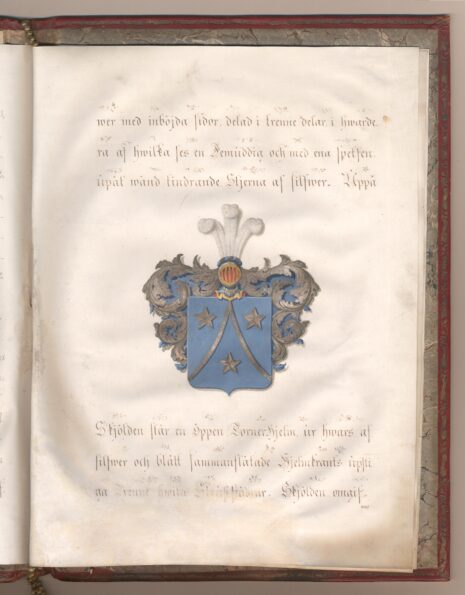 wer med inböjda sidor, delad i trenne delar, i hwarde
ra af hwilka ses en Femuddig och med ena spetsen
upåt wänd tindrande Stjerna af silfwer. Uppå
Skjölden står en Öppen Tornerhjelm, ur hwars af
silfwer och blått sammanflätade Hjelmkrants uppsti
ga Trenne hwita Strutsfjädrar. Skjölden omgif-